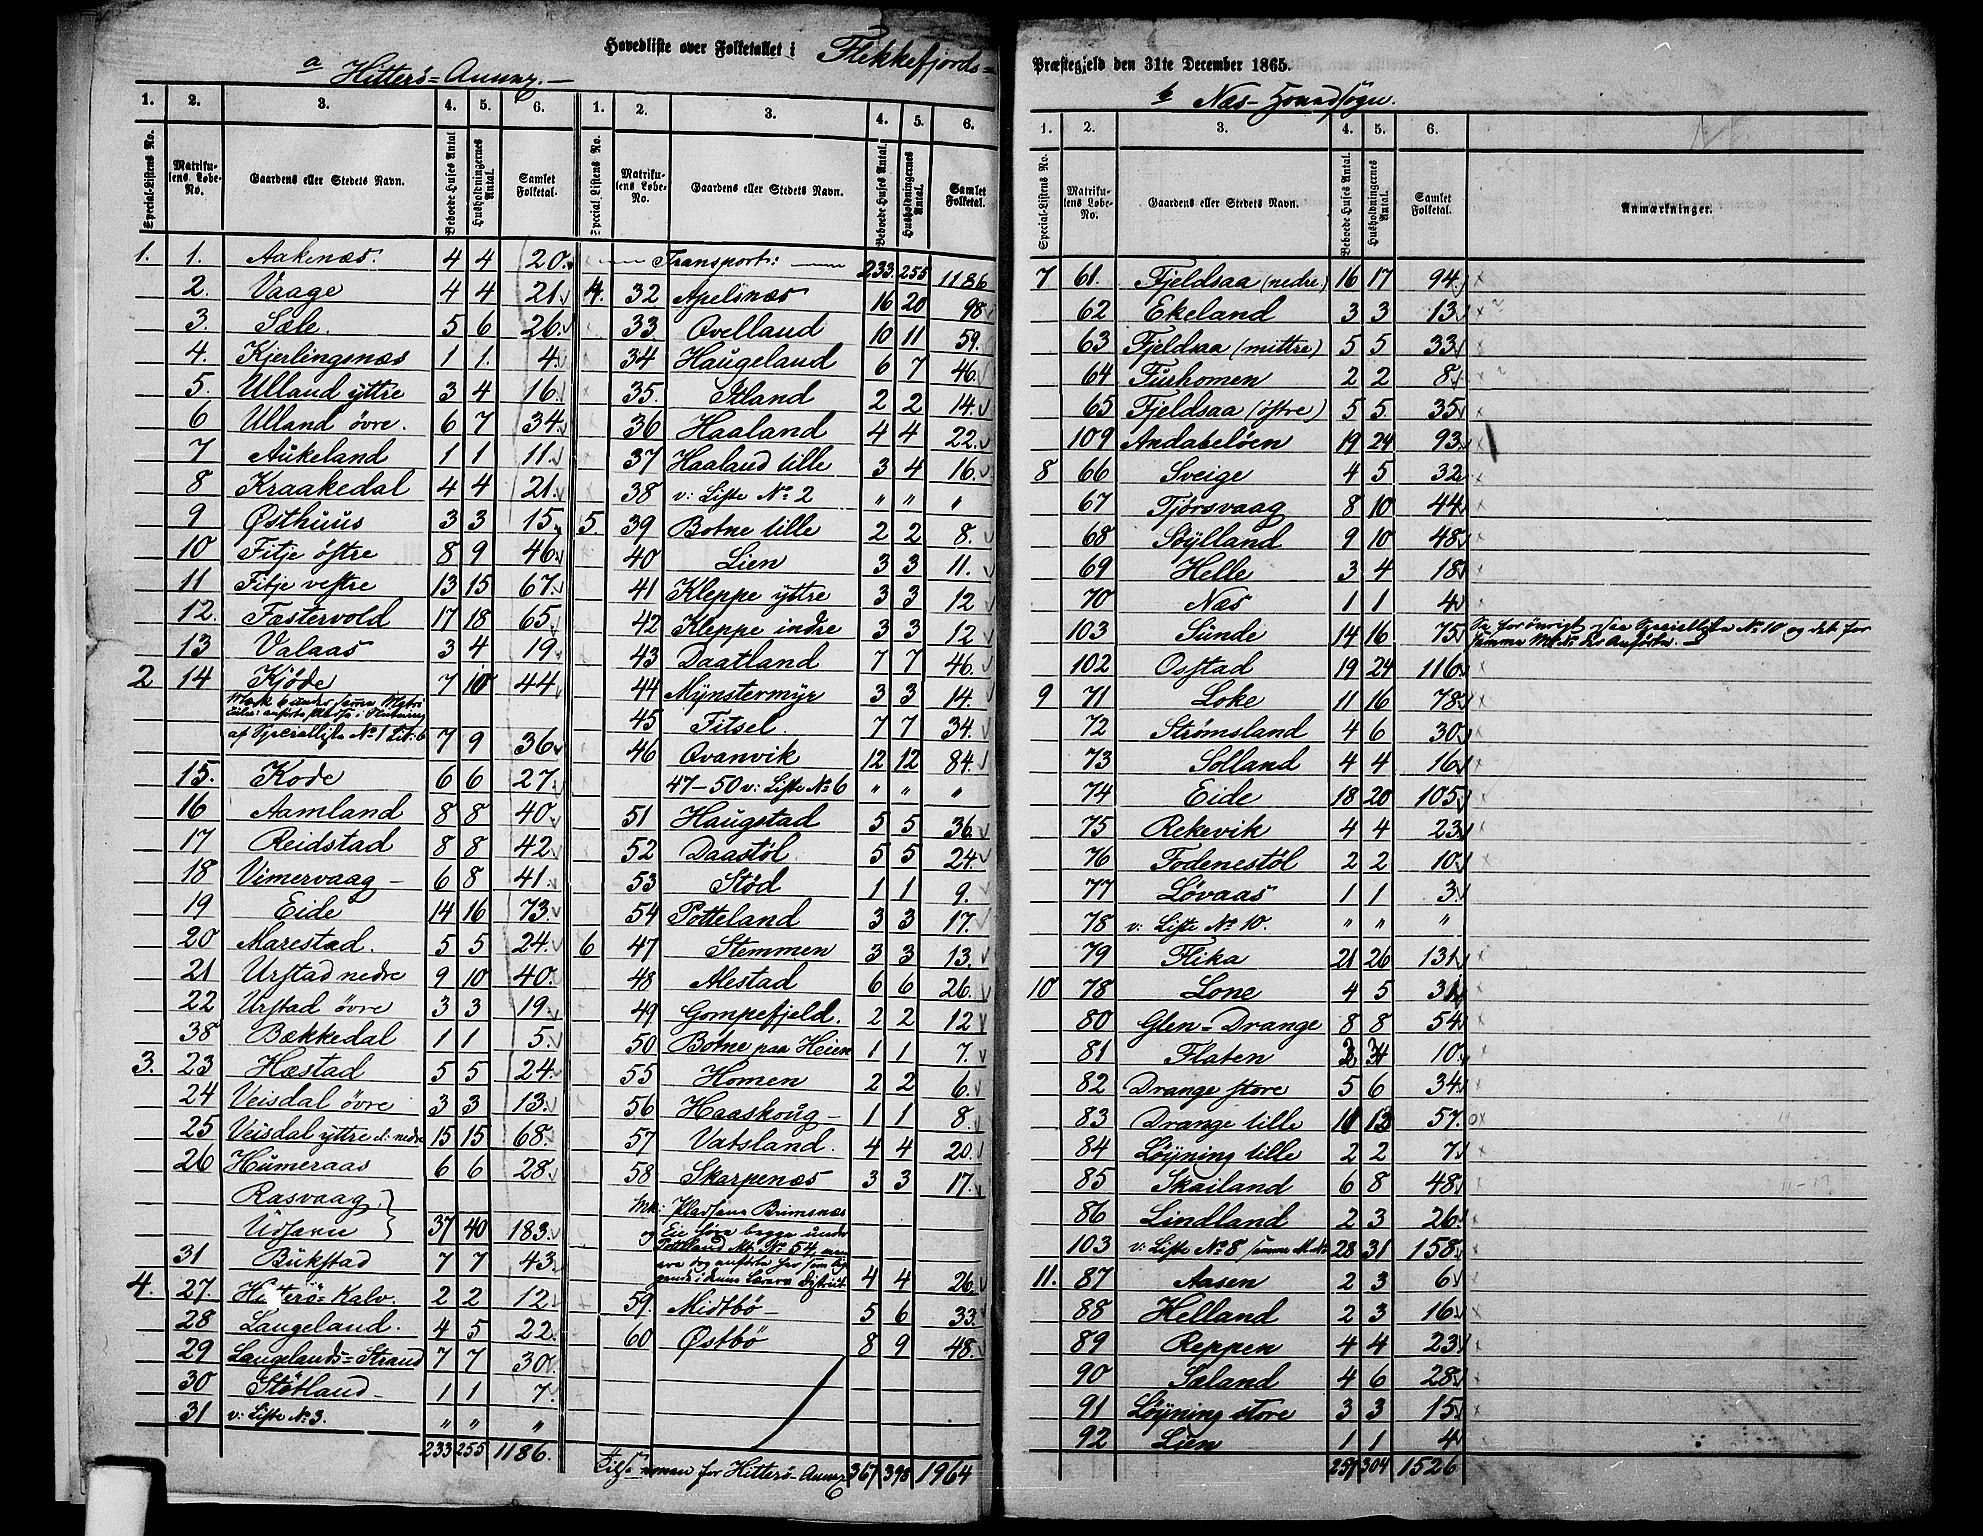 Hovedliste over Folketallet i Flekkefjords=
a Hitterø= Annex.
1. 2. 3. 4. 5. 6. 1. 2. 3. 4. 5. 6.
Special-Listens No. Matrikulens Løbe-No. Gaardens eller Stedets Navn. Beboede Huses Antal Husholdningernes Antal. Samlet Folketal. Special-Listens No. Matrikulens Løbe-No. Gaardens eller Stedets Navn. Beboede Huses Antal. Husholdningernes Antal. Samlet Folketal.
1. 1. Aakenæs. 4 4 20.
2. Vaage 4 4 21
3. Sæle. 5 6 26.
4. Kjerlingsnæs 1 1. 4.
5. Ulland yttre 3 4 16.
6 Ulland øvre. 6 7 34.
7 Aukeland 1 1 11.
8 Kraakedal 4 4 21.
9 Østhuus 3 3 15.
10 Fitje östre 8 9 46.
11 Fitje vestre 13 15 67.
12. Fastervold 17 18 65.
13 Valaas 3 4 19
2 14 Kjøde 7 10 44
af Specialliste No 1 Lit: b 7 9 36
15. Kode 6 6 27.
16 Aamland 8 8 40.
17 Reidstad 8 8 42
18 Vimervaag 6 8 41.
19 Eide 14 16 73.
20 Marestad. 5 5 24.
21 Urstad nedre 9 10 40.
22 Urstad øvre 3 3 19.
38 Bækkedal 1 1 5.
3. 23 Hæstad 5 5 24.
24 Veisdal øvre 3 3 13.
25 Veisdal yttre el: nedre 15 15 68.
26 Humeraas 6 6 28
Rasvaag }
Udhavn } 37 40 183.
31 Bukstad 7 7 43
4. 27. Hitterø= Kalv. 2 2 12
28 Langeland. 4 5 22.
29 Langelands= Strand 7 7 30
30 Støtland 1 1 7.
31 v: Liste No 3. " " "
233 255 1186.
Transport: 233. 255 1186
4. 32 Apelsnæs 16 20 98
33. Ovelland 10 11 59.
34 Haugeland 6 7 46.
35. Itland 2 2 14.
36 Haaland 4 4 22.
37 Haaland lille 3 4 16.
38 v: Liste No 2 " " "
5. 39 Botne lille 2 2 8.
40 Lien 3 3 11.
41 Kleppe yttre 3 3 12
42 Kleppe indre 3 3 12
43 Daatland 7 7 46.
44 Mÿnstermÿr 3 3 14.
45 Fitsel. 7 7 34.
46 Ovanvik 12 12 84.
47–50 v: Liste No 6 " " "
51 Haugstad 5 5 36
52 Daastøl. 5 5 24.
53 Stöd 1 1 9.
54 Potteland 3 3 17.
6 47 Stemmen 3 3 13.
48 Alestad 6 6 26.
49 Gompefjeld. 2 2 12
50 Botne paa Heien 1 1 7.
55 Homen 2 2 6.
56 Haaskoug 1 1 8
57 Vatsland. 4 4 20.
58 Skarpenæs 3 3 17.
Mk: Pladsene Bumsnæs
Potteland M. No 54, men
4 4 26
59. Midtbö 5 6 33.
60 Østbö 8 9 48.
Tilsammen for Hitterö Annex 367 398 1964
Præstegjeld den 31te December 1865.
b Næs- Hovedsogn.
1. 2. 3. 4. 5. 6.
Special-Listens No. Matrikulens Løbe-No. Gaardens eller Stedets Navn. Beboede Huses Antal. Husholdningernes Antal. Samlet Folketal. Anmærkninger.
7 61. Fjeldsaa (nedre) 16 17 94.
62 Ekeland 3 3 13
63 Fjeldsaa (mittre) 5 5 33
64 Furhomen 2 2 8
65 Fjeldsaa (östre) 5 5 35
109 Andabelöen 19 24 93
8 66 Sveige 4 5 32
67 Tjörsvaag 8 10 44
68 Söÿlland 9 10 48
69 Helle 3 4 18
70 Næs 1 1 4
103 Sunde 14 16 75 Se forövrigt Specialliste No 10 og det for samme M. No der Anförte.
102 Osstad 19 24 116
9 71 Loke 11 16 78
72 Strømsland 4 6 30
73 Solland 4 4 16
74 Eide 18 20 105
75 Rekevik 4 4 23
76 Fodenestöl 2 2 10
77 Lövaas 1 1 3
78 v: Liste No 10. " " "
79 Flika 21 26 131
10 78 Lone 4 5 31
80 Glen= Drange 8 8 54
81 Flaten 10
82 Drange store 5 6 34
83 Drange lille 57.
84 Löÿning lille 2 2 7
85 Skailand 6 8 48
86 Lindland 2 3 26
103 v: Liste No 8 samme M. No 28 31 158
11. 87 Aasen 2 3 6
88 Helland 2 3 16
89 Reppen 4 4 23
90 Sæland 4 6 28
91 Löÿning store 3 3 15
92 Lien 1 1 4
304 1526